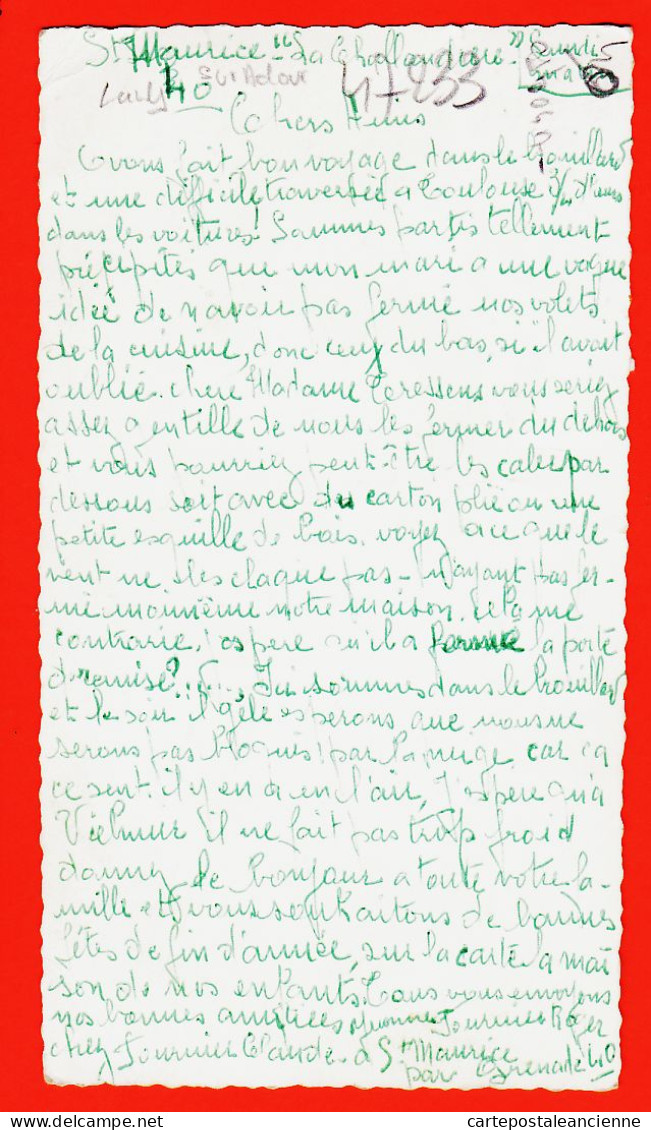 St Maurice - "La Chollandure" - Lundi
sur Adour 47233
40
Chers Amis
Avons fait bon voyage dans le brouillard
et une difficile traversée a Toulouse
dans les voitures! Sommes partis tellement
précipités que mon mari a une vague
idée de n'avoir pas fermé nos volets
de la cuisine, donc ceux du bas, si il avait
oublié. chere Madame vous seriez
assez gentille de nous les fermer du dehors
et vous pourriez peut-être les caler par
dessous soit avec du carton plié ou une
petite esquille de bois. voyez a ce que le
vent ne les claque pas - N'ayant pas fer-
mé moi même notre maison. cela me
contrarie, j'espere qu'il a fermé la porte
remise?..... Ici sommes dans le brouillard
et le soir il gèle esperons que nous ne
serons pas bloqués par la neige car ça
ce sent. il y en a en l'air, J'espere qu'a
Vielmur il ne fait pas trop froid
donnez le bonjour a toute votre fa-
mille et vous souhaitons de bonnes
fêtes de fin d'année, sur la carte la mai
son de nos enfants. Tous vous envoyons
nos bonnes amitiées Yvonne Fournier Roger
chez Fournier Claude - à St Maurice
par Grenade 40
cartepostaleancienne.com